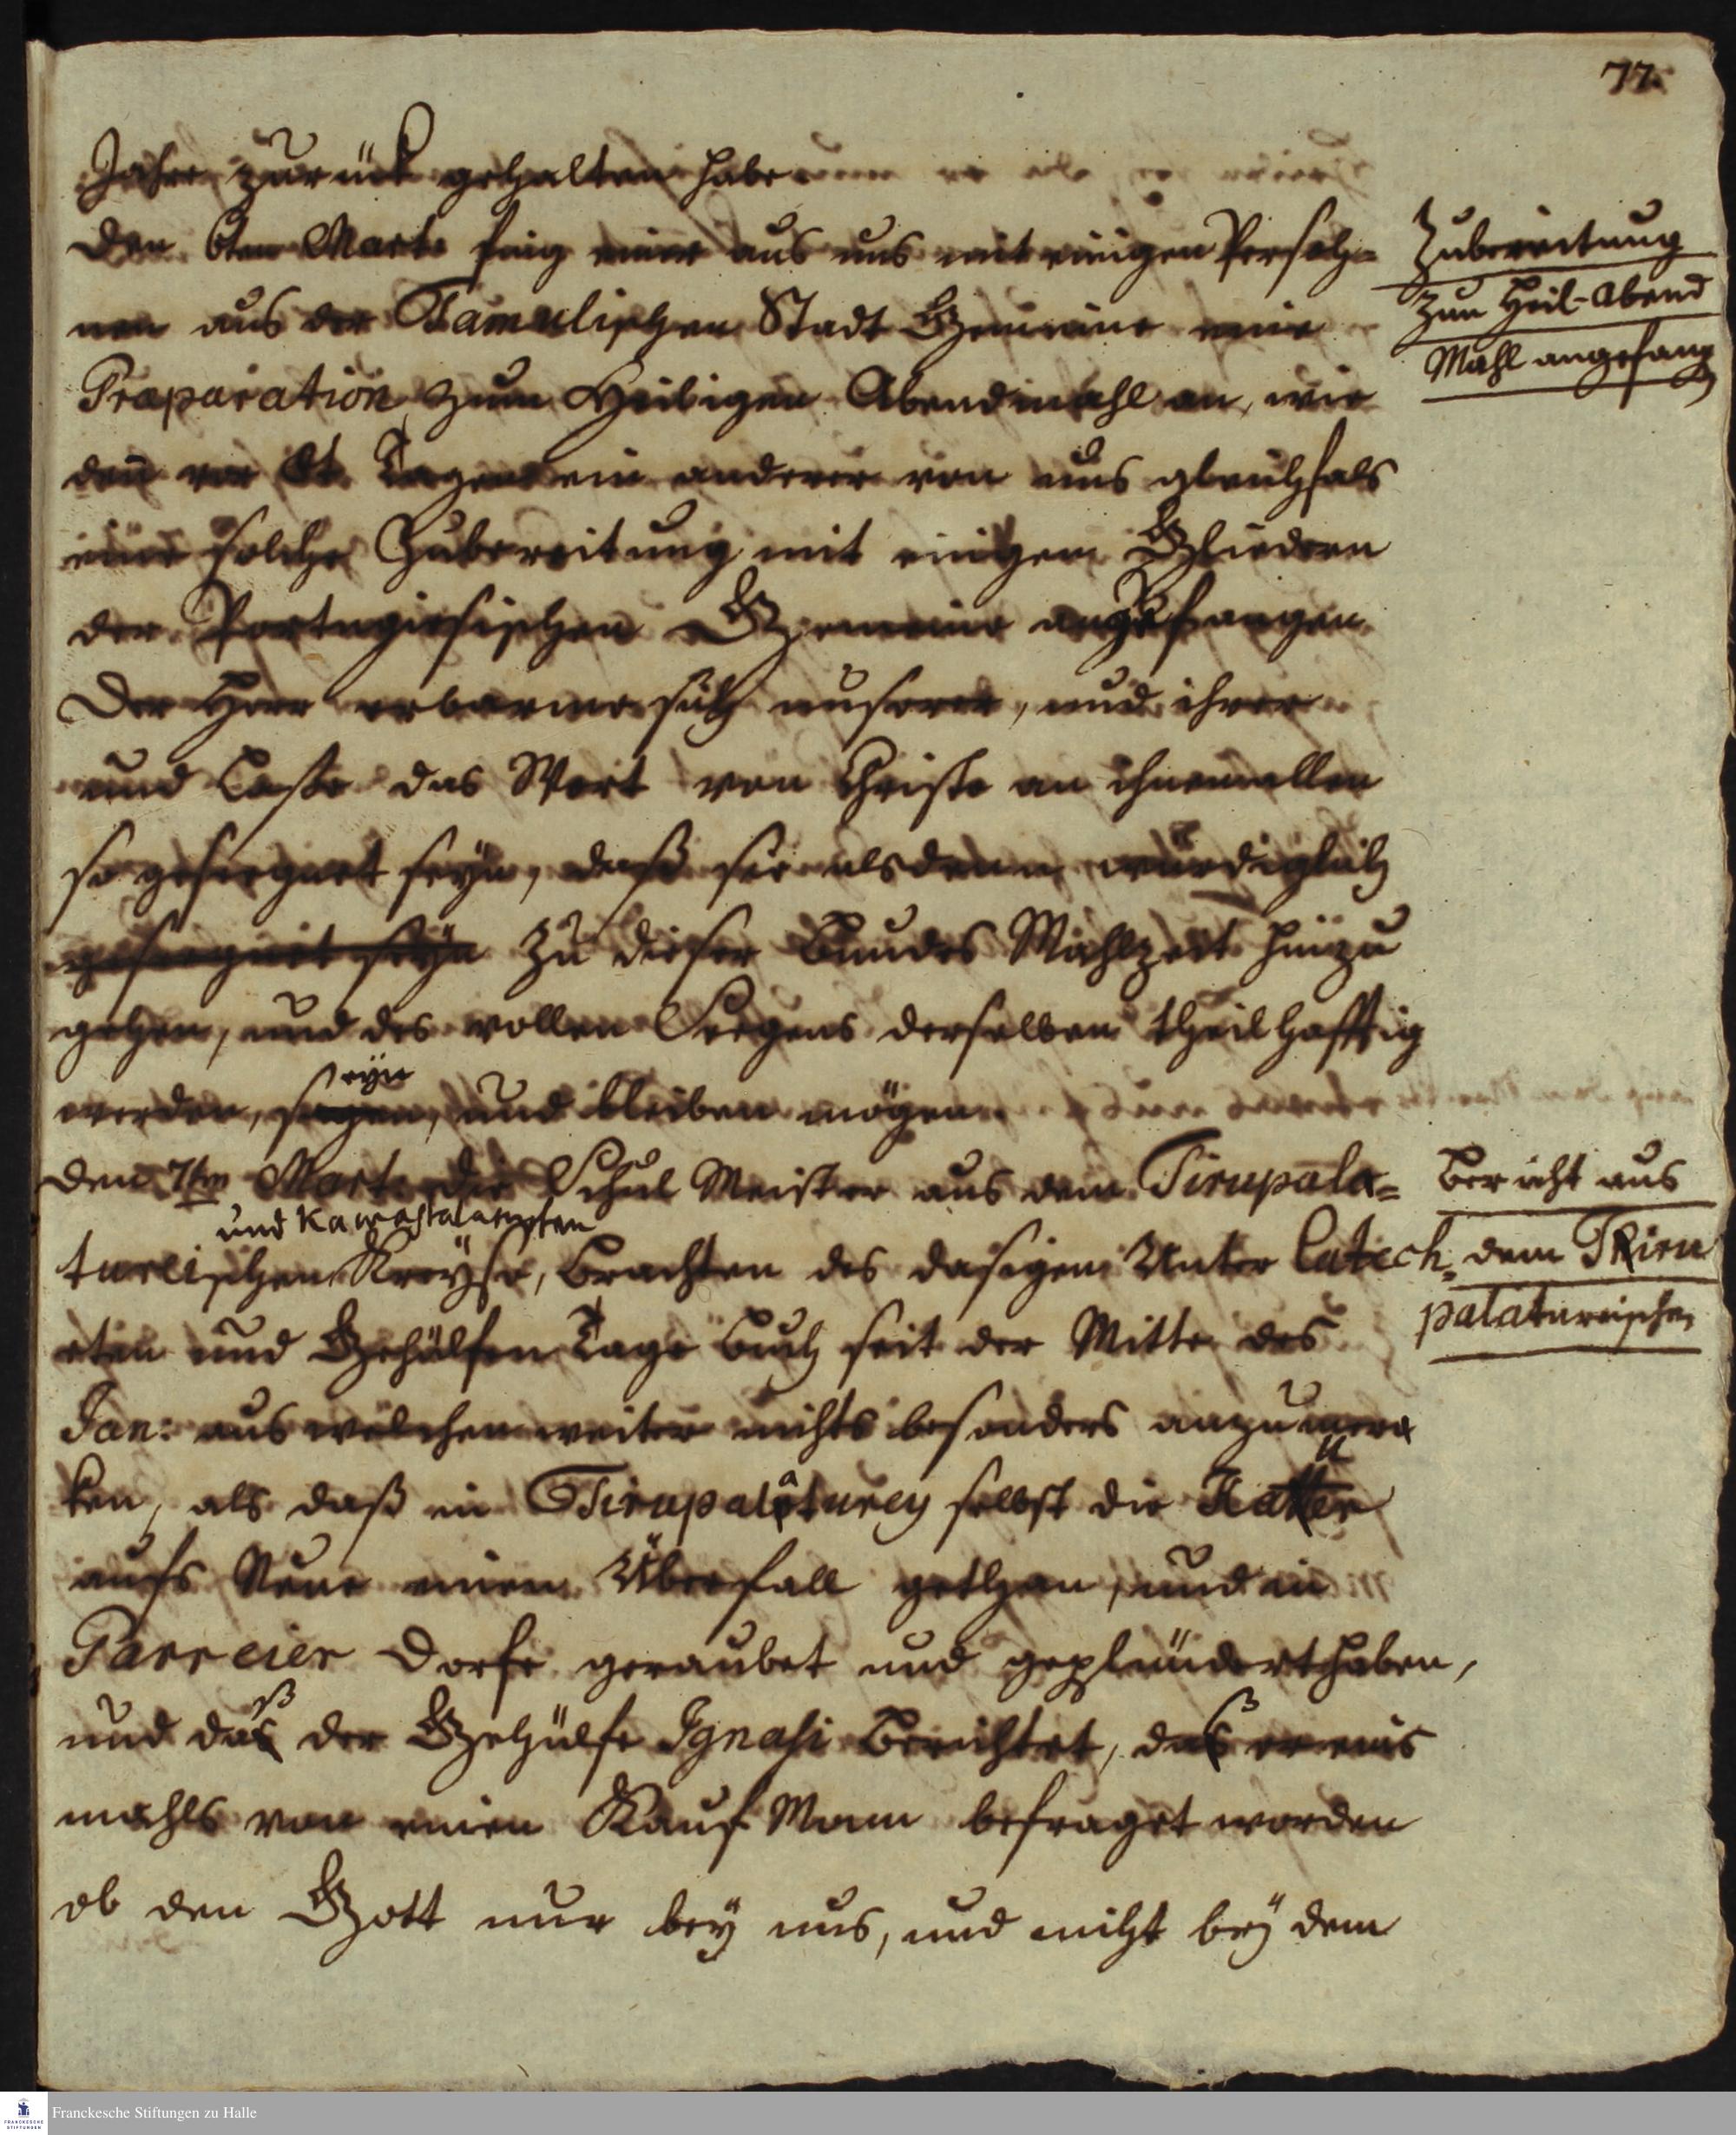 77.
Jahre zurück gehalten habe.
Den 6ten Mart: fing einer aus uns mit einigen Persoh-
nen aus der Tamulischen Stadt Gemeine eine
Præparation zum Heiligen Abendmahl an, wie
den vor 8t. Tagen ein anderer von uns gleichfals
eine solche Zubereitung mit einigen Gliedern
der Portugiesischen Gemeine angefangen.
Der Herr erbarme sich unserer, und ihrer
und Laße das Wort von Christo an ihnen allen
so gesegnet seyn, daß sie alsdenn würdiglich
gesegnet seyn zu dieser Bundes Mahlzeit hinzu
gehen, und des vollen Seegens derselben theilhafftig
seyn
werden, segen, und bleiben mögen.
Den 7ten Mart: die Schul Meister aus dem Tirupala-
und
tureischen Kreyse, brachten des dasigen Unter Catech-
eten und Gehülfen Tage Buch seit der Mitte des
Jan: aus welchen weiter nichts besonders anzumer
ken, als daß in Tirupalaturey selbst die Kaller
aufs Neue einen Überfall gethan, und in
Parreier Dorfe geraubet und geplündert haben,
und daß der Gehülfe Ignasi Berichtet, daß er eins
mahls von einen Kauf Mann befraget worden
ob den Gott nur bey uns, und nicht bey dem
Zubereitung
zum Heil-Abend
Mahl angefang
Bericht aus
dem Tiru
palatureischen
Franckesche Stiftungen zu Halle